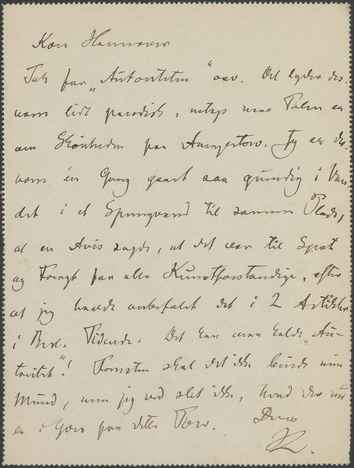 Kære Hannover
Tak for „Autoriteten" osv. Det lyder des-
værre lidt parodisk, netop naar Talen er
om Skønheden paa Amagertorv. Jeg er des-
værre én Gang gaaet saa grundig i Van-
det i et Spring til samme Plads,
at en Avis sagde, at det var til Spot
og Foragt for alle Kunstforstandige, efter
at jeg havde anbefalet det i 2 Artikler
i Berl. Tidende. Det kan man kalde „Au-
toritet"! Forresten skal det ikke binde min
Mund, men jeg ved slet ikke, hvad der nu
er i Gære paa dette Torv. Deres